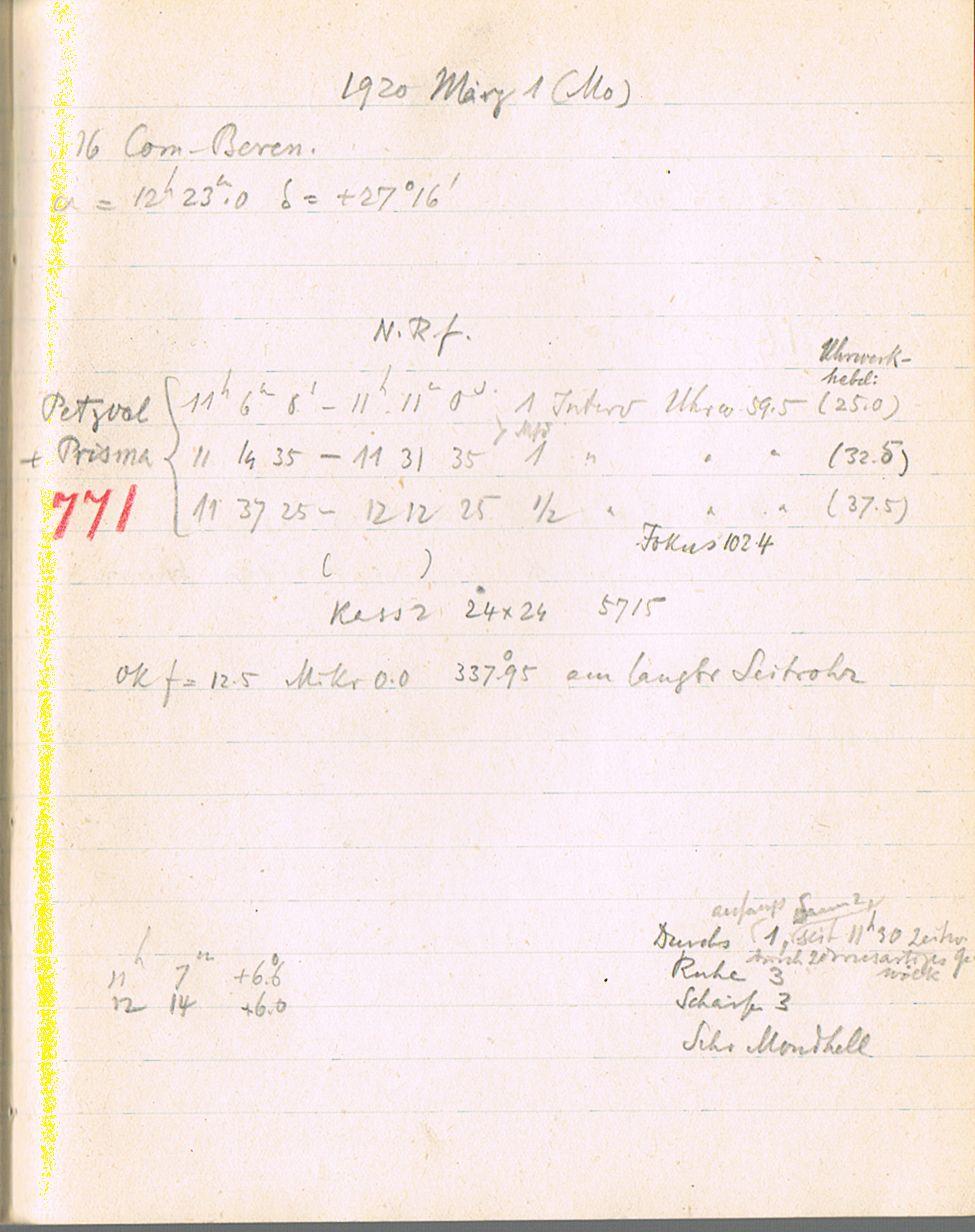 1920 März 1 (Mo)
16 Com-Beren.
α = 12h 23m.0 δ = +27°16'
N.R.f.
Uhrwerk-
hebel:
Petzval + Prisma
771
11h 6m 8s – 11h 11m 0s 1 Interv Uhrw 59.5 (25.0)
11 14 35 – 11 31 35 1 " " " (32.5)
11 37 25 – 12 12 25 1/2 " " " (37.5)
Fokus 102.4
( )
Kass 2 24x24 5715
Ok f = 12.5 Mikr 0.0 337°.95 am langbr Seitrohr
anfangs
Durchs 1, seit 11h30 zeitw.
durch zirrusartiges Ge-
wölk
11h 7m +6°.6
Ruhe 3
12 14 +6.0
Schärfe 3
Sehr Mondhell